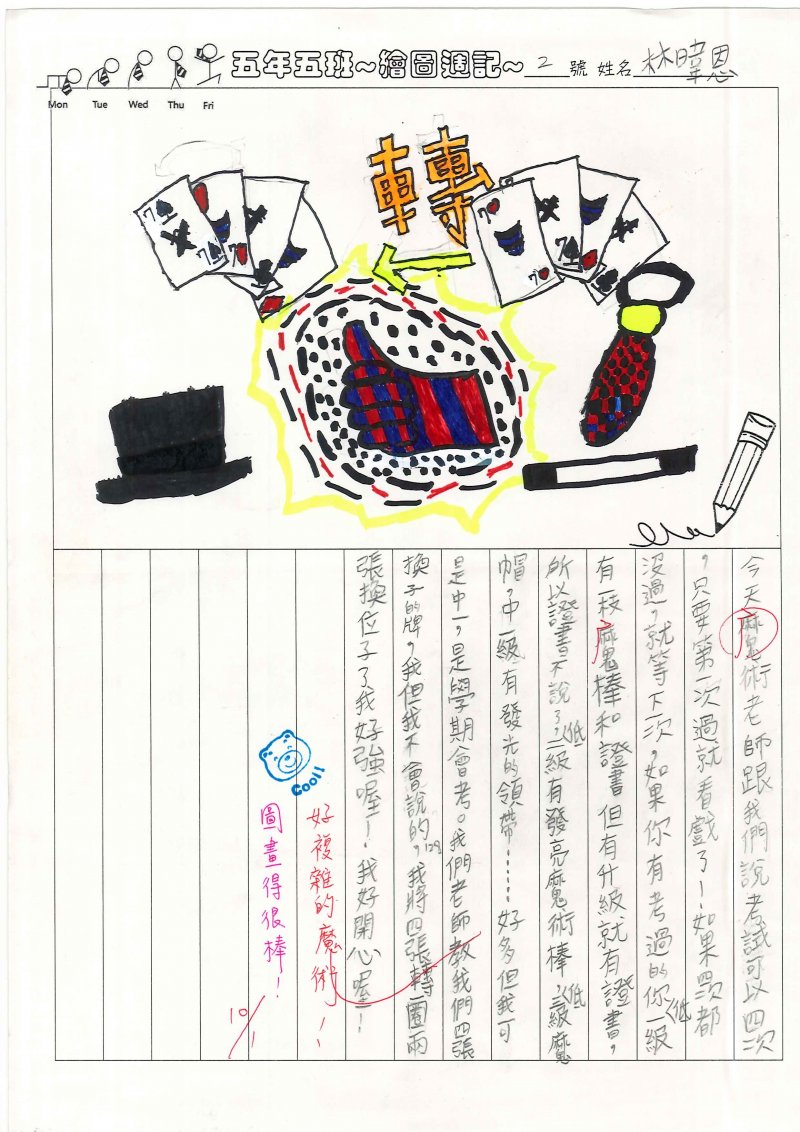 五年五班~繪圖週記~ 2 號 姓名 林暐恩
Mon Tue Wed Thu Fri
轉
今天魔術老師跟我們說考試可以四次
，只要第一次過就看戲了！如果四次都
沒過，就等下一次，如果你有考過的你低一級
有一枝魔棒和證書但有升級就有證書，
所以證書不說了，低二級有發亮魔術棒，低三級魔
帽，中一級有發光的領帶……好多但我可
是中一，是學期會考。我們老師教我們四張
換子的牌，我但我不會說的，我將四張轉一圈兩
張換位子了我好強喔！我好開心喔！
Cool!
好複雜的魔術！
圖畫得很棒！
10/1